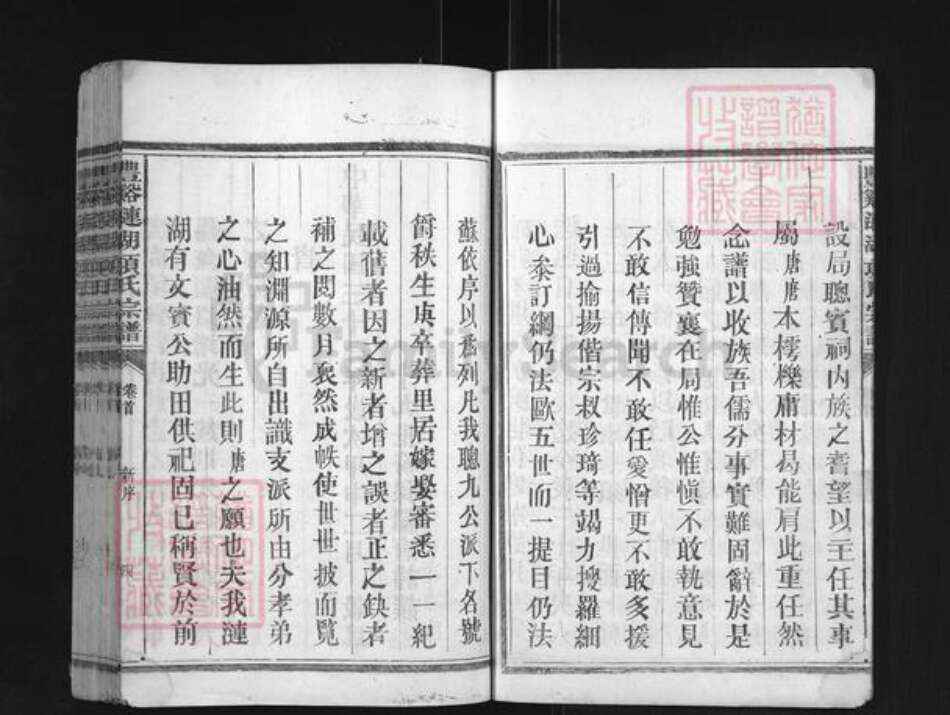 設局聰賓祠內族之耆望以主任其事
屬唐唐本樗櫟庸材曷能肩此重任然
念譜以收族吾儒分事實難固辭於是
勉強贊襄在局惟公惟慎不敢執意見
不敢信傳聞不敢任愛憎更不敢妄援
引過揄揚偕宗叔珍琦等竭力搜羅細
心叅訂綱仍法歐五世而一提目仍法
蘇依序以悉列凡我聰九公派下名號
爵秩生庚卒葬里居嫁娶審悉一一紀
載舊者因之新者增之誤者正之缺者
補之閱數月裒然成帙使世世披而覽
之知淵源所自出識支派所由分孝弟
之心油然而生此則唐之願也夫我漣
湖有文賓公助田供祀固已稱賢於前
豐谿漣湖項氏宗譜
卷首
新序
猶他家譜學會收藏
FamilySearch